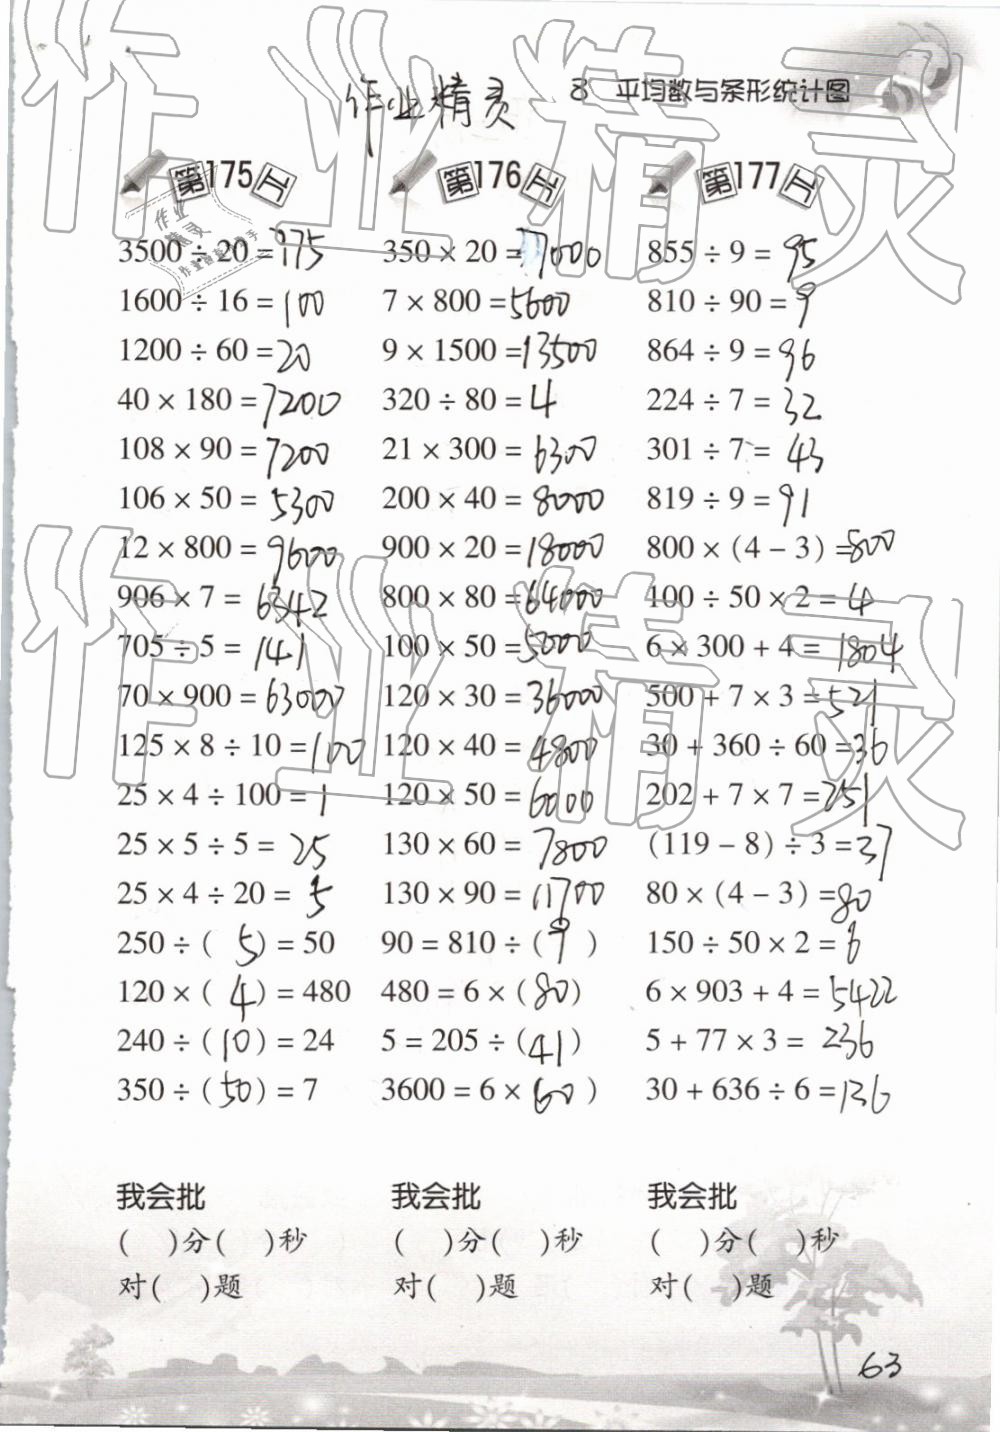 作业精灵
8 平均数与条形统计图
第175页
3500 ÷ 20 = 175
1600 ÷ 16 = 100
1200 ÷ 60 = 20
40 × 180 = 7200
108 × 90 = 7200
106 × 50 = 5300
12 × 800 = 9600
906 × 7 = 6342
705 ÷ 5 = 141
70 × 900 = 63000
125 × 8 ÷ 10 = 100
25 × 4 ÷ 100 = 1
25 × 5 ÷ 5 = 25
25 × 4 ÷ 20 = 5
250 ÷ ( 5 ) = 50
120 × ( 4 ) = 480
240 ÷ ( 10 ) = 24
350 ÷ ( 50 ) = 7
我会批
( )分( )秒
对( )题
第176页
350 × 20 = 7000
7 × 800 = 5600
9 × 1500 = 13500
320 ÷ 80 = 4
21 × 300 = 6300
200 × 40 = 8000
900 × 20 = 18000
800 × 80 = 64000
100 × 50 = 5000
120 × 30 = 36000
120 × 40 = 4800
120 × 50 = 6000
130 × 60 = 7800
130 × 90 = 11700
90 = 810 ÷ ( 9 )
480 = 6 × ( 80 )
5 = 205 ÷ ( 41 )
3600 = 6 × 60 )
我会批
( )分( )秒
对( )题
第177页
855 ÷ 9 = 95
810 ÷ 90 = 9
864 ÷ 9 = 96
224 ÷ 7 = 32
301 ÷ 7 = 43
819 ÷ 9 = 91
800 × (4 − 3) = 800
100 ÷ 50 × 2 = 4
6 × 300 + 4 = 1804
500 + 7 × 3 = 521
30 + 360 ÷ 60 = 36
202 + 7 × 7 = 251
(119 − 8) ÷ 3 = 37
80 × (4 − 3) = 80
150 ÷ 50 × 2 = 6
6 × 903 + 4 = 5422
5 + 77 × 3 = 236
30 + 636 ÷ 6 = 136
我会批
( )分( )秒
对( )题
63
作业精灵
作业精灵